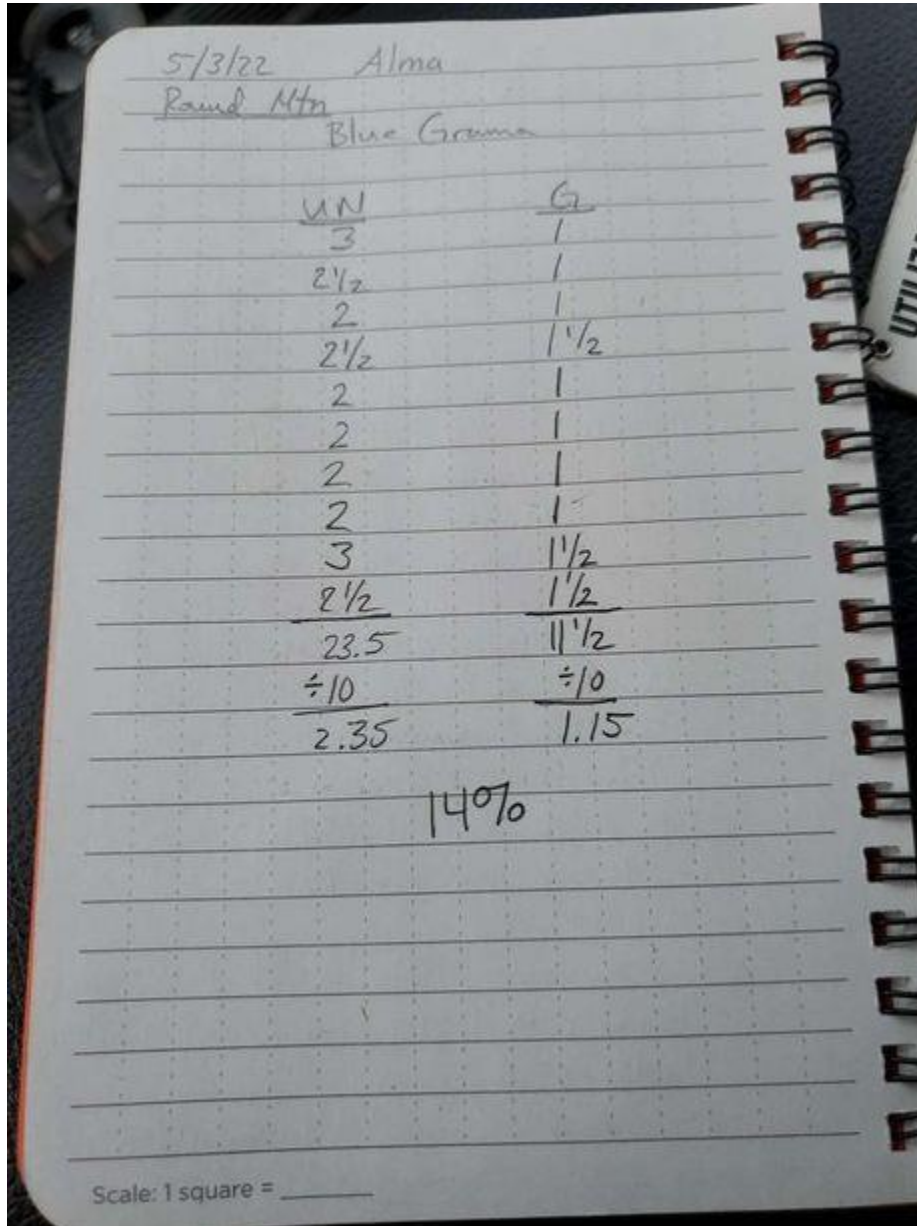 5/3/22 Alma
Round Mtn
Blue Grama
UN G
3 1
2 1/2 1
2 1
2 1/2 1 1/2
2 1
2 1
2 1
2 1
3 1 1/2
2 1/2 1 1/2
23.5 11 1/2
÷10 ÷10
2.35 1.15
14%
Scale: 1 square = ______